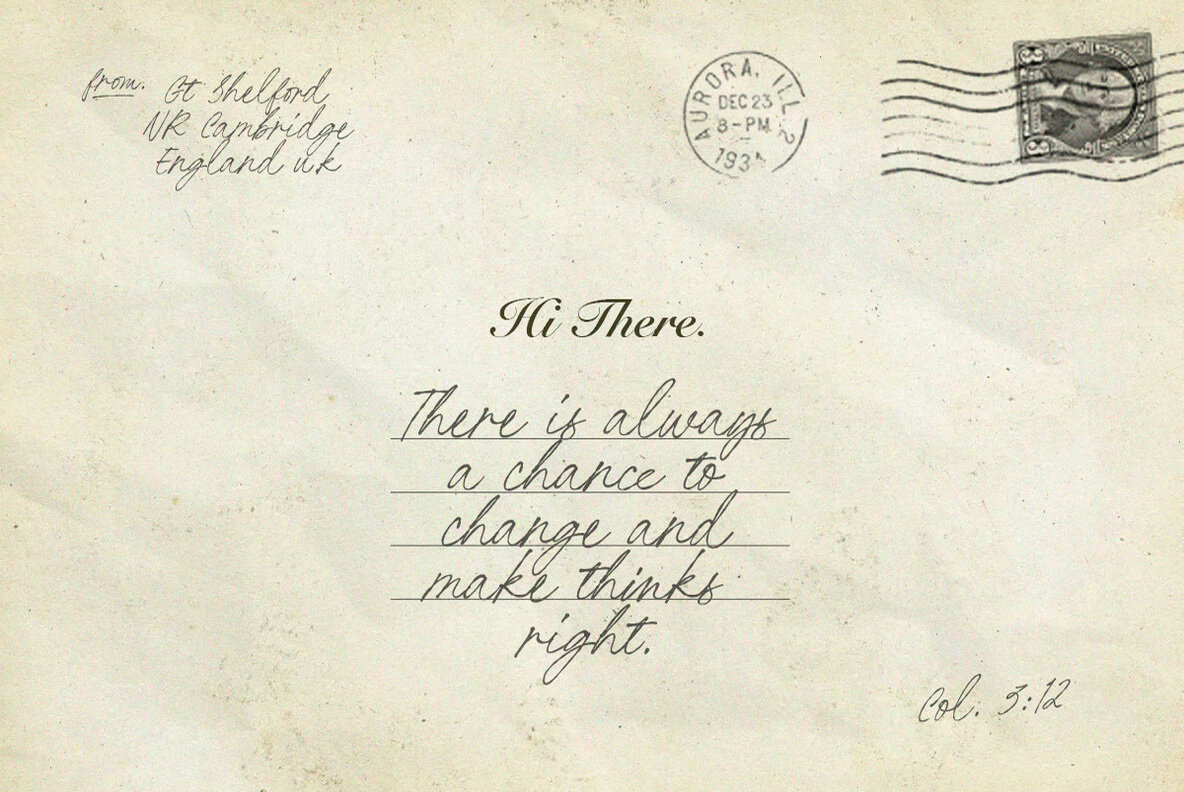 from. Gt Shelford
NR Cambridge
England uk
AURORA, ILL. 2
DEC 23
8-PM
193
Hi There.
There is always
a chance to
change and
make thinks
right.
Col. 3:12